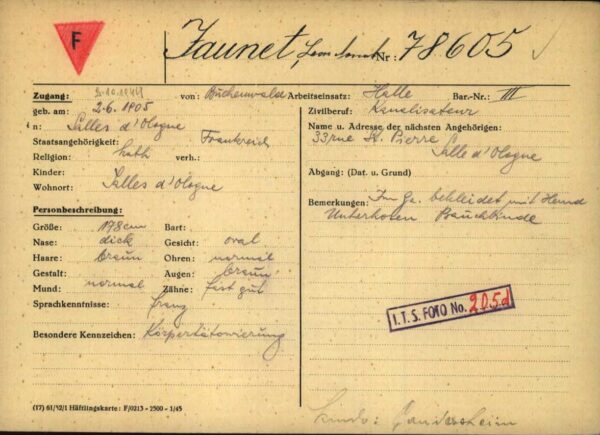 F
Jaunet, Nr: 78605
Zugang: 3.10.1944 von: Buchenwald Arbeitseinsatz: Halle Bar.-Nr.: III
geb. am: 2.6.1905 Zivilberuf: Kanalisateur
n: Salles d'Ologne Name u. Adresse der nächsten Angehörigen:
Staatsangehörigkeit: Frankreich 33 rue St. Pierre
Religion: kath verh.: Salle d'Ologne
Kinder: Abgang: (Dat. u. Grund)
Wohnort: Salles d'Ologne
Bemerkungen: bekleidet mit Hemd
Unterhosen
Personbeschreibung:
Größe: 178cm Bart:
Nase: dick Gesicht: oval
Haare: braun Ohren: normal
Gestalt: Augen: braun
Mund: normal Zähne: fast gut
Sprachkenntnisse: franz
Besondere Kennzeichen: Körpertätowierung
I.T.S. FOTO No. 205d
(17) 61/12/1 Häftlingskarte: F/0213 - 2500 - 1/45
Gandersheim